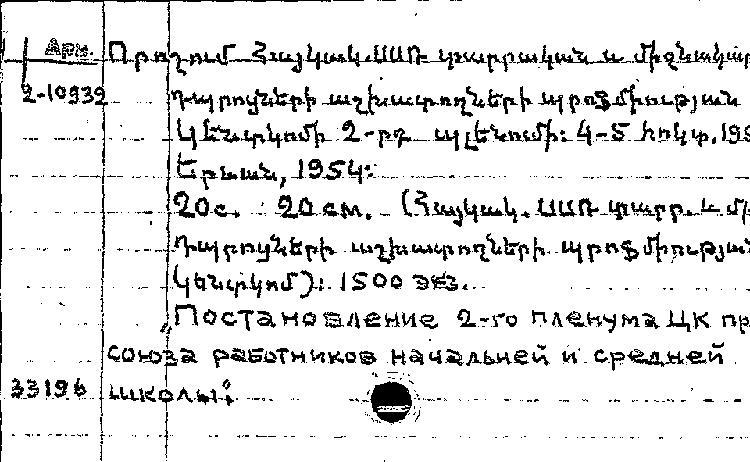 Арм. Որոշում Հայկակ.ՍՍՌ տարրական և միջնակար
2-10939 դպրոցների աշխատողների պրոֆմիության
Կենտկոմի 2-րդ պլենումի: 4-5 հոկտ.195
Երևան, 1954:
20с. 20см. (Հայկակ. ՍՍՌ տարր. և մ
դպրոցների աշխատողների պրոֆմիության
կենտկոմ): 1500 экз.
„Постановление 2-го пленума ЦК пр
союза работников начальней и средней
33196 школы":